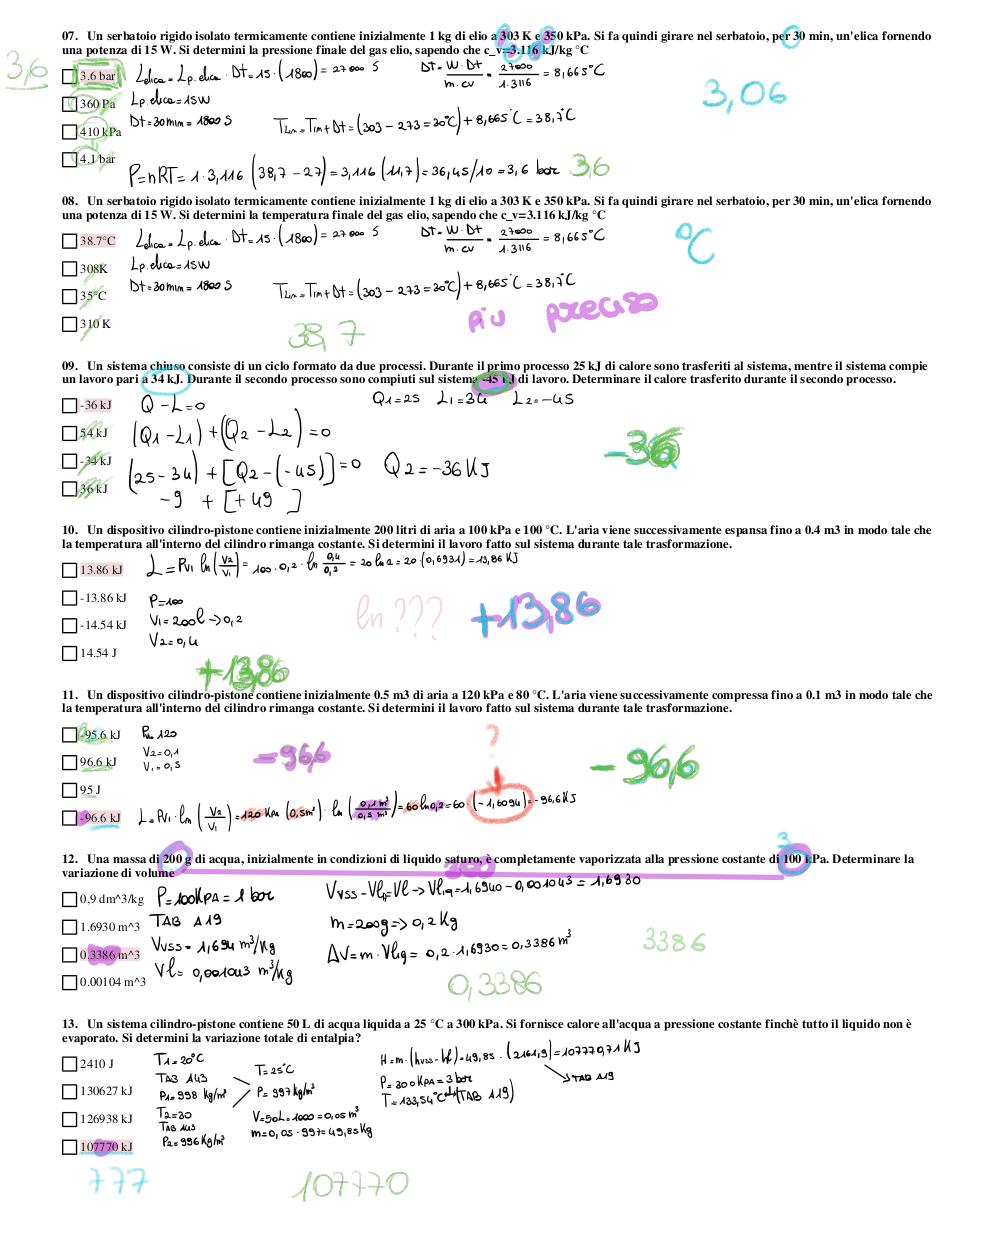 07. Un serbatoio rigido isolato termicamente contiene inizialmente 1 kg di elio a 303 K e 350 kPa. Si fa quindi girare nel serbatoio, per 30 min, un'elica fornendo
una potenza di 15 W. Si determini la pressione finale del gas elio, sapendo che c_v=3.116 kJ/kg °C
3,6
3.6 bar
Lelica = Lp.elica · Dt = 15 · (1800) = 27000 S
Dt = W · Dt / m · cv = 27000 / 1 · 3116 = 8,665°C
360 Pa
Lp.elica = 15W
3,06
410 kPa
Dt = 30min = 1800 S
TLin = Tin + Dt = (303 - 273 = 30°C) + 8,665°C = 38,7°C
4.1 bar
P = nRT = 1 · 3,116 (38,7 - 27) = 3,116 (11,7) = 36,45/10 = 3,6 bar 3,6
08. Un serbatoio rigido isolato termicamente contiene inizialmente 1 kg di elio a 303 K e 350 kPa. Si fa quindi girare nel serbatoio, per 30 min, un'elica fornendo
una potenza di 15 W. Si determini la temperatura finale del gas elio, sapendo che c_v=3.116 kJ/kg °C
38.7°C
Lelica = Lp.elica · Dt = 15 · (1800) = 27000 S
Dt = W · Dt / m · cv = 27000 / 1 · 3116 = 8,665°C
°C
308K
Lp.elica = 15W
35°C
Dt = 30min = 1800 S
TLin = Tin + Dt = (303 - 273 = 30°C) + 8,665°C = 38,7°C
310 K
38,7
più preciso
09. Un sistema chiuso consiste di un ciclo formato da due processi. Durante il primo processo 25 kJ di calore sono trasferiti al sistema, mentre il sistema compie
un lavoro pari a 34 kJ. Durante il secondo processo sono compiuti sul sistema -45 kJ di lavoro. Determinare il calore trasferito durante il secondo processo.
-36 kJ
Q - L = 0
Q1=25 L1=34 L2=-45
54 kJ
(Q1 - L1) + (Q2 - L2) = 0
-36
-34 kJ
(25 - 34) + [Q2 - (-45)] = 0 Q2 = -36 KJ
36 kJ
-9 + [+49 ]
10. Un dispositivo cilindro-pistone contiene inizialmente 200 litri di aria a 100 kPa e 100 °C. L'aria viene successivamente espansa fino a 0.4 m3 in modo tale che
la temperatura all'interno del cilindro rimanga costante. Si determini il lavoro fatto sul sistema durante tale trasformazione.
13.86 kJ
L = PV1 ln (V2/V1) = 100 · 0,2 · ln 0,4/0,2 = 20 ln 2 = 20 (0,6931) = 13,86 KJ
-13.86 kJ
P=100
ln ???
+13,86
-14.54 kJ
V1 = 200l → 0,2
14.54 J
V2 = 0,4
+13,86
11. Un dispositivo cilindro-pistone contiene inizialmente 0.5 m3 di aria a 120 kPa e 80 °C. L'aria viene successivamente compressa fino a 0.1 m3 in modo tale che
la temperatura all'interno del cilindro rimanga costante. Si determini il lavoro fatto sul sistema durante tale trasformazione.
-95,6 kJ
?
96.6 kJ
V2=0,1
-96,6
-96,6
V1=0,5
95 J
-96.6 kJ
L = PV1 · ln (V2/V1) = 120 KPA (0,5m³) · ln (0,1 m³/0,5 m³) = 60 ln 0,2 = 60 (-1,6094) = -96,6 KJ
3
12. Una massa di 200 g di acqua, inizialmente in condizioni di liquido saturo, è completamente vaporizzata alla pressione costante di 100 kPa. Determinare la
variazione di volume
0,9 dm^3/kg
P = 100KPA = 1 bar
Vvss - Vl = Vl → Vliq = 1,6940 - 0,001043 = 1,6930
1.6930 m^3
TAB A19
m = 200g => 0,2 Kg
0.3386 m^3
Vvss = 1,694 m³/Kg
ΔV = m · Vliq = 0,2 · 1,6930 = 0,3386 m³
3386
0.00104 m^3
Vl = 0,001043 m³/kg
0,3386
13. Un sistema cilindro-pistone contiene 50 L di acqua liquida a 25 °C a 300 kPa. Si fornisce calore all'acqua a pressione costante finchè tutto il liquido non è
evaporato. Si determini la variazione totale di entalpia?
2410 J
T1 = 20°C
T = 25°C
H = m · (hvss - hl) = 49,85 · (2161,9) = 107770,71 KJ
TAB A19
130627 kJ
TAB A43
P1 = 998 kg/m³
P = 997 kg/m³
P = 300KPA = 3 bar
T = 133,54°C (TAB A19)
126938 kJ
T2 = 30
TAB A43
V = 50L = 1000 = 0,05 m³
107770 kJ
P2 = 996 Kg/m³
m = 0,05 · 997 = 49,85 Kg
777
107770